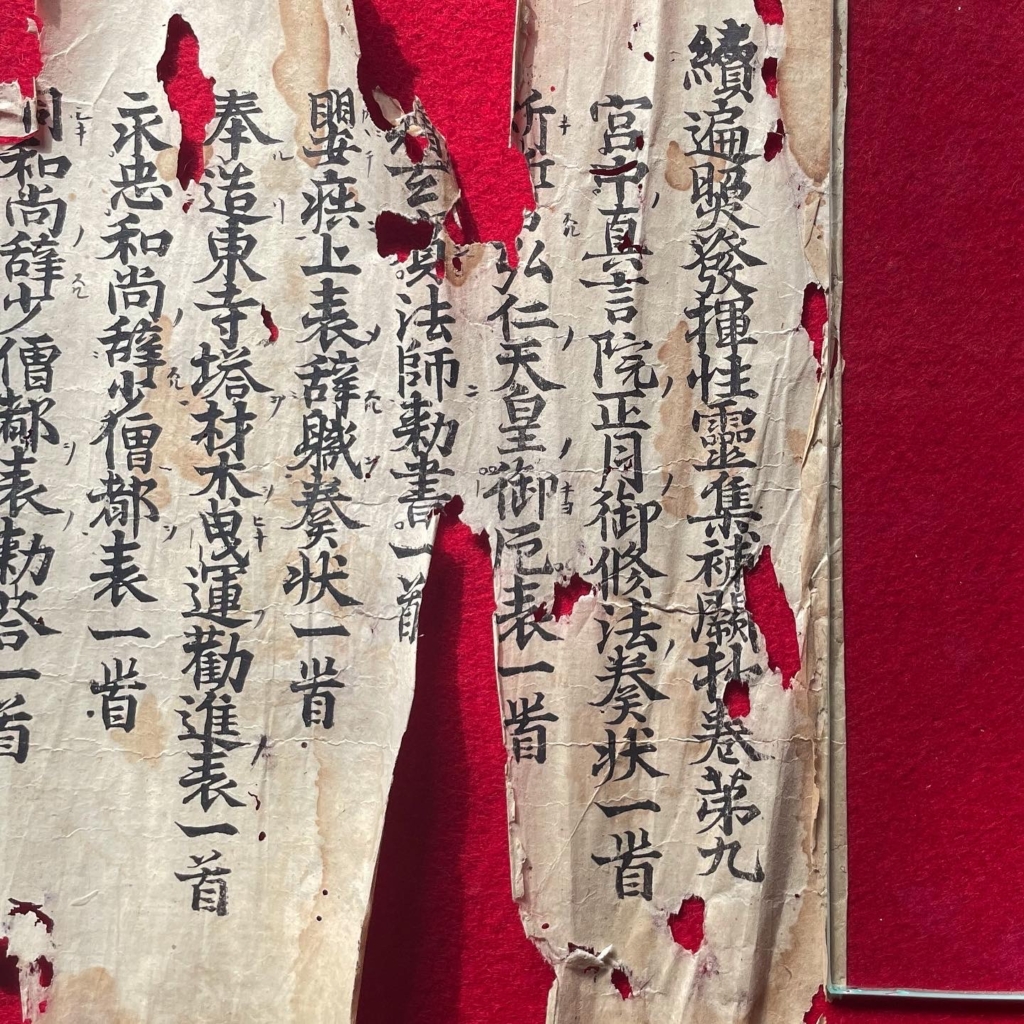 續遍照發揮性靈集補闕抄卷第九
宮中真言院正月御修法奏状一首
祈 弘仁天皇御厄表一首
玄賓法師勅書一首
嬰疾上表辞職奏状一首
奉造東寺塔材木曳運勸進表一首
永忠和尚辞少僧都表一首
同和尚辞少僧都表勅答一首